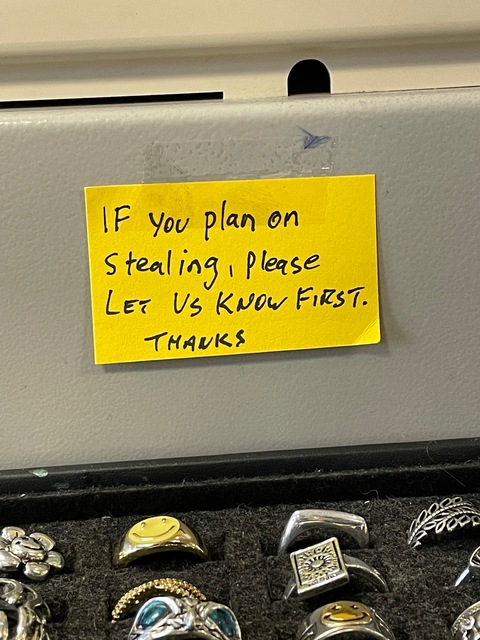 IF you plan on
Stealing, Please
LET US KNOW FIRST.
THANKS